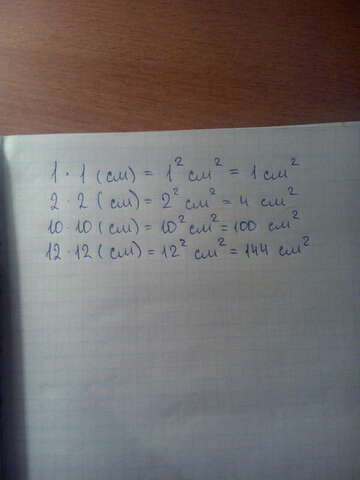 1 · 1 (см) = 1² см² = 1 см²
2 · 2 (см) = 2² см² = 4 см²
10 · 10 (см) = 10² см² = 100 см²
12 · 12 (см) = 12² см² = 144 см²